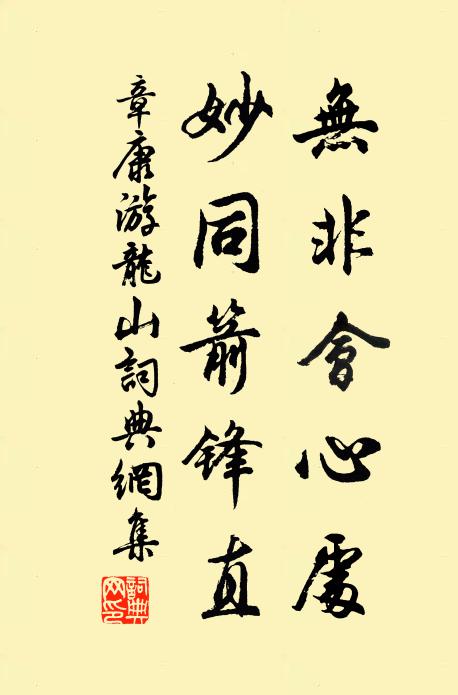 無非會心處
妙同箭鋒直
章康游龍山詞典網集
詞典网印